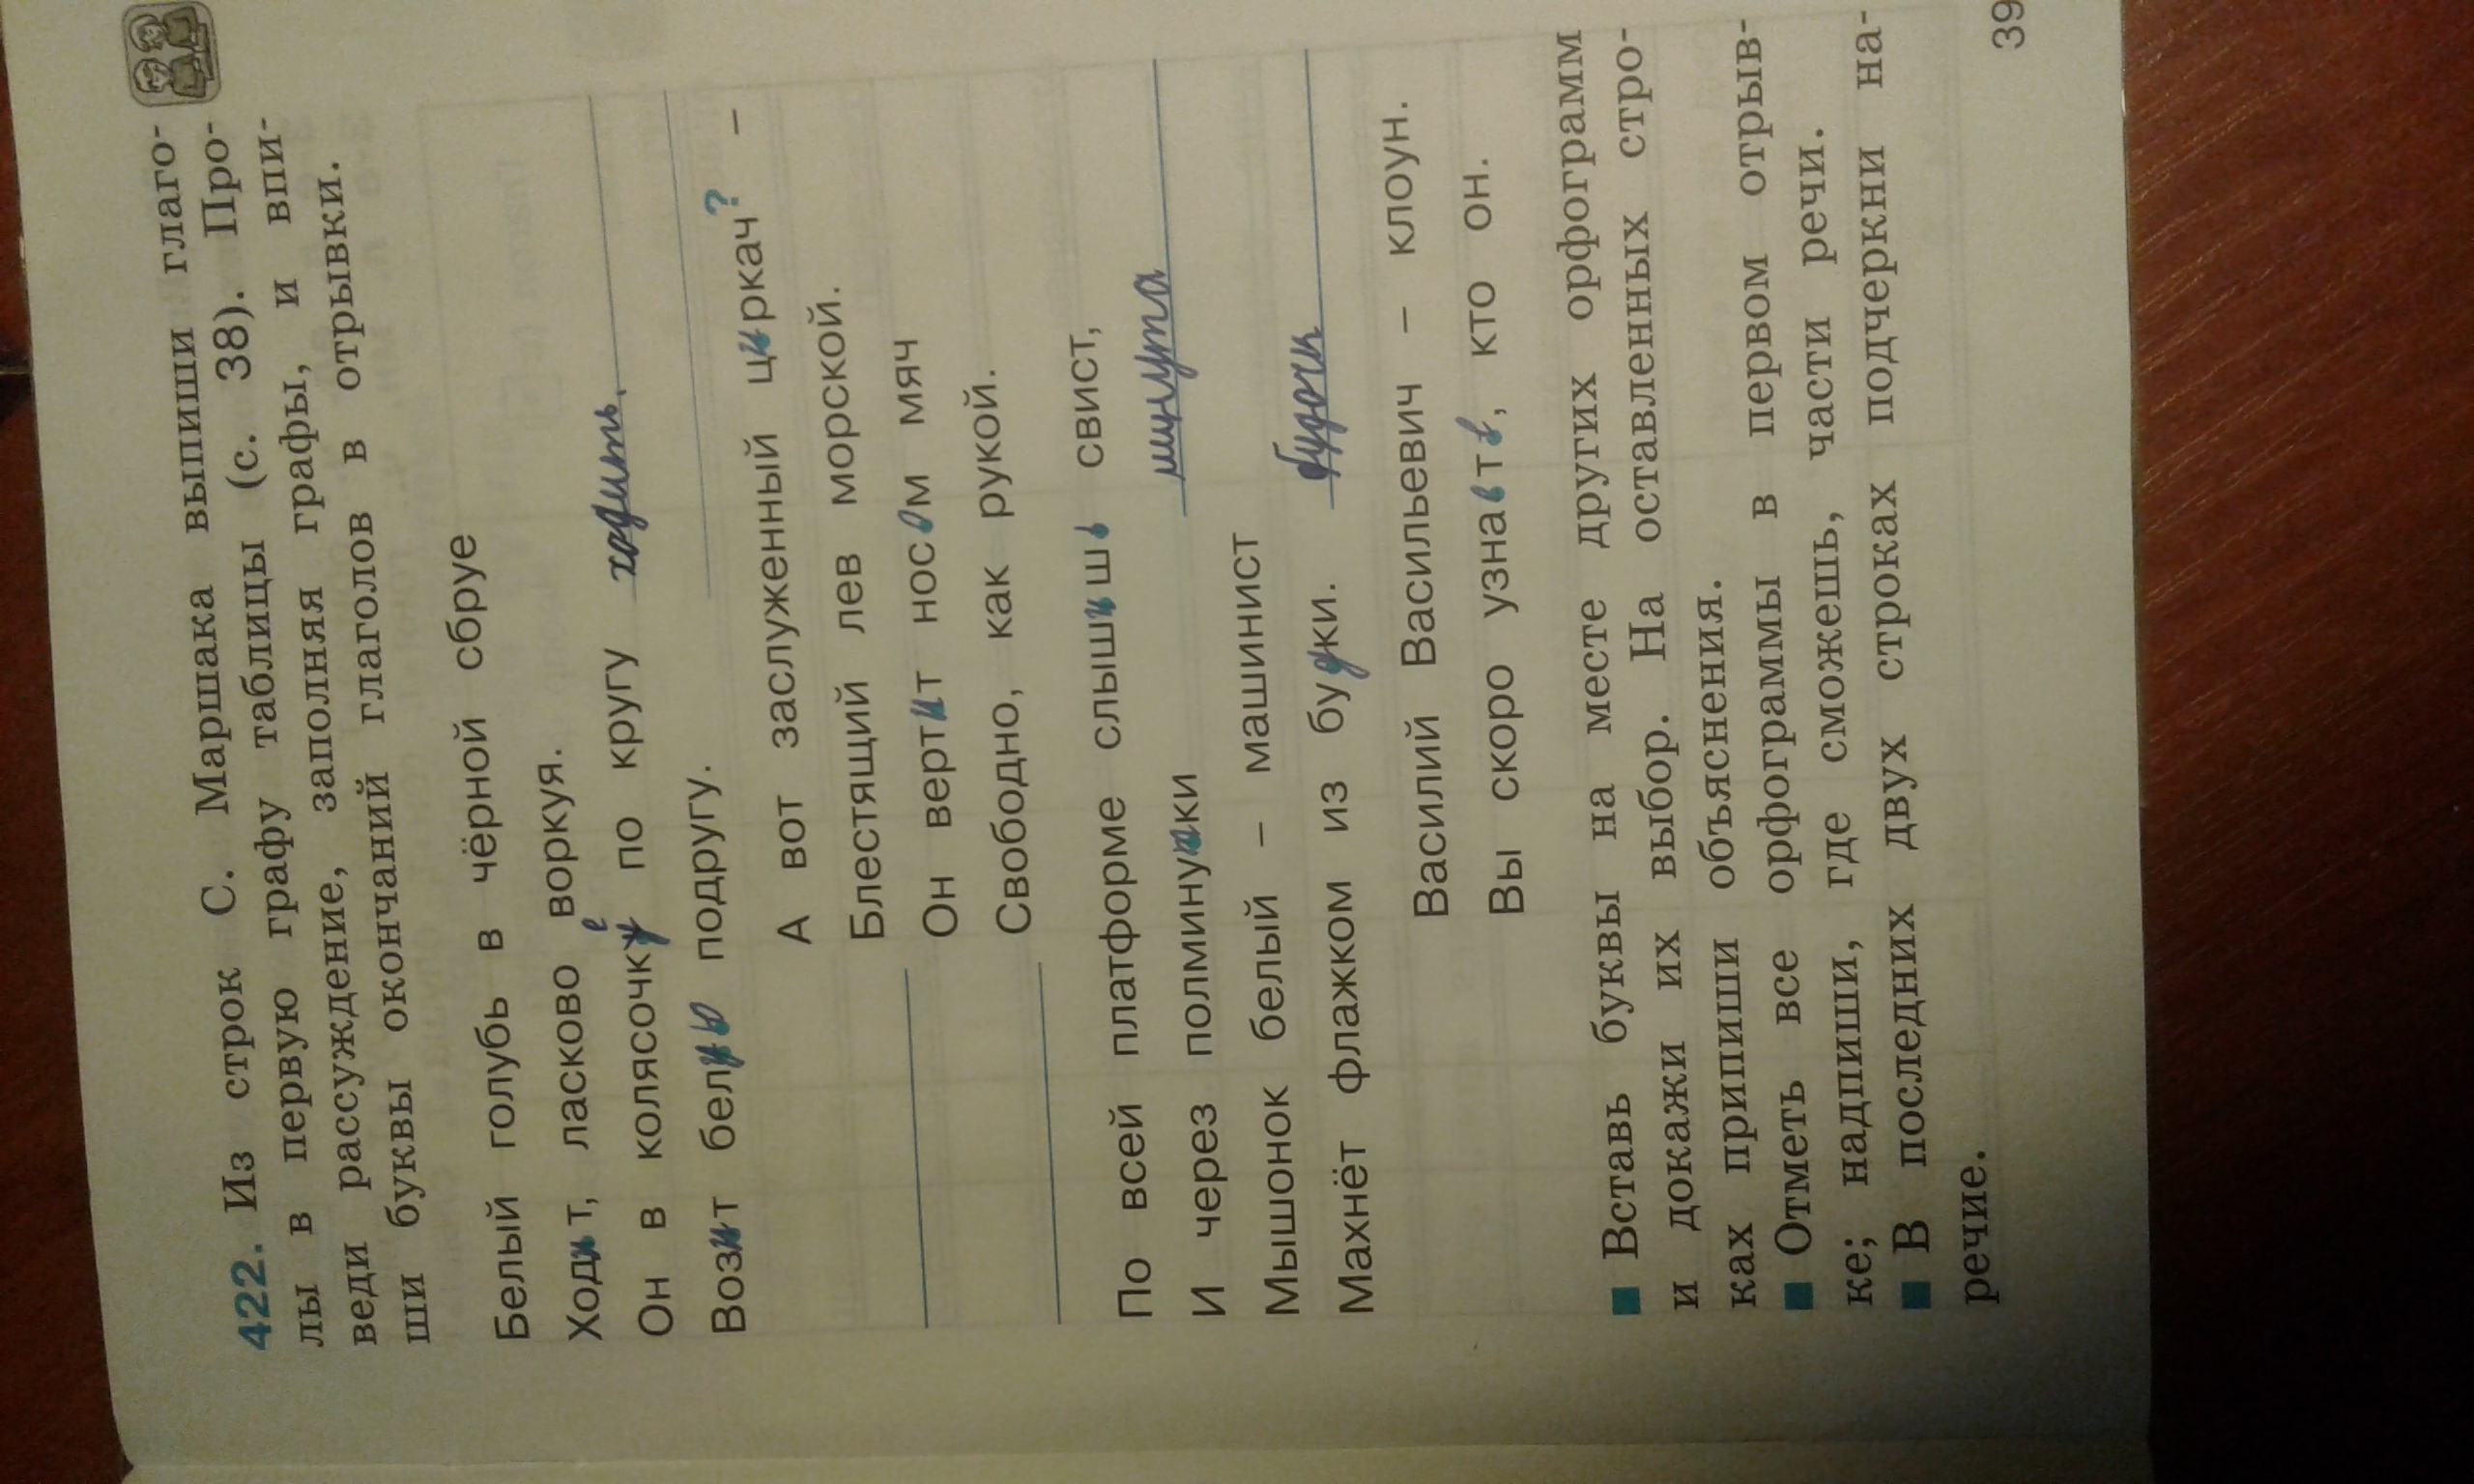 422. Из строк С. Маршака выпиши глаго-
лы в первую графу таблицы (с. 38). Про-
веди рассуждение, заполняя графы, и впи-
ши буквы окончаний глаголов в отрывки.
Белый голубь в чёрной сбруе
Ходит, ласково воркуя.
е
Он в колясочк по кругу ходить
Возит белую подругу.
А вот заслуженный циркач? –
Блестящий лев морской.
Он вертит носом мяч
Свободно, как рукой.
По всей платформе слышишь свист,
И через полминутки минута
Мышонок белый – машинист
Махнёт флажком из будки. будочки
Василий Васильевич – клоун.
Вы скоро узнаете, кто он.
■ Вставь буквы на месте других орфограмм
и докажи их выбор. На оставленных стро-
ках припиши объяснения.
■ Отметь все орфограммы в первом отрыв-
ке; надпиши, где сможешь, части речи.
■ В последних двух строках подчеркни на-
речие.
39